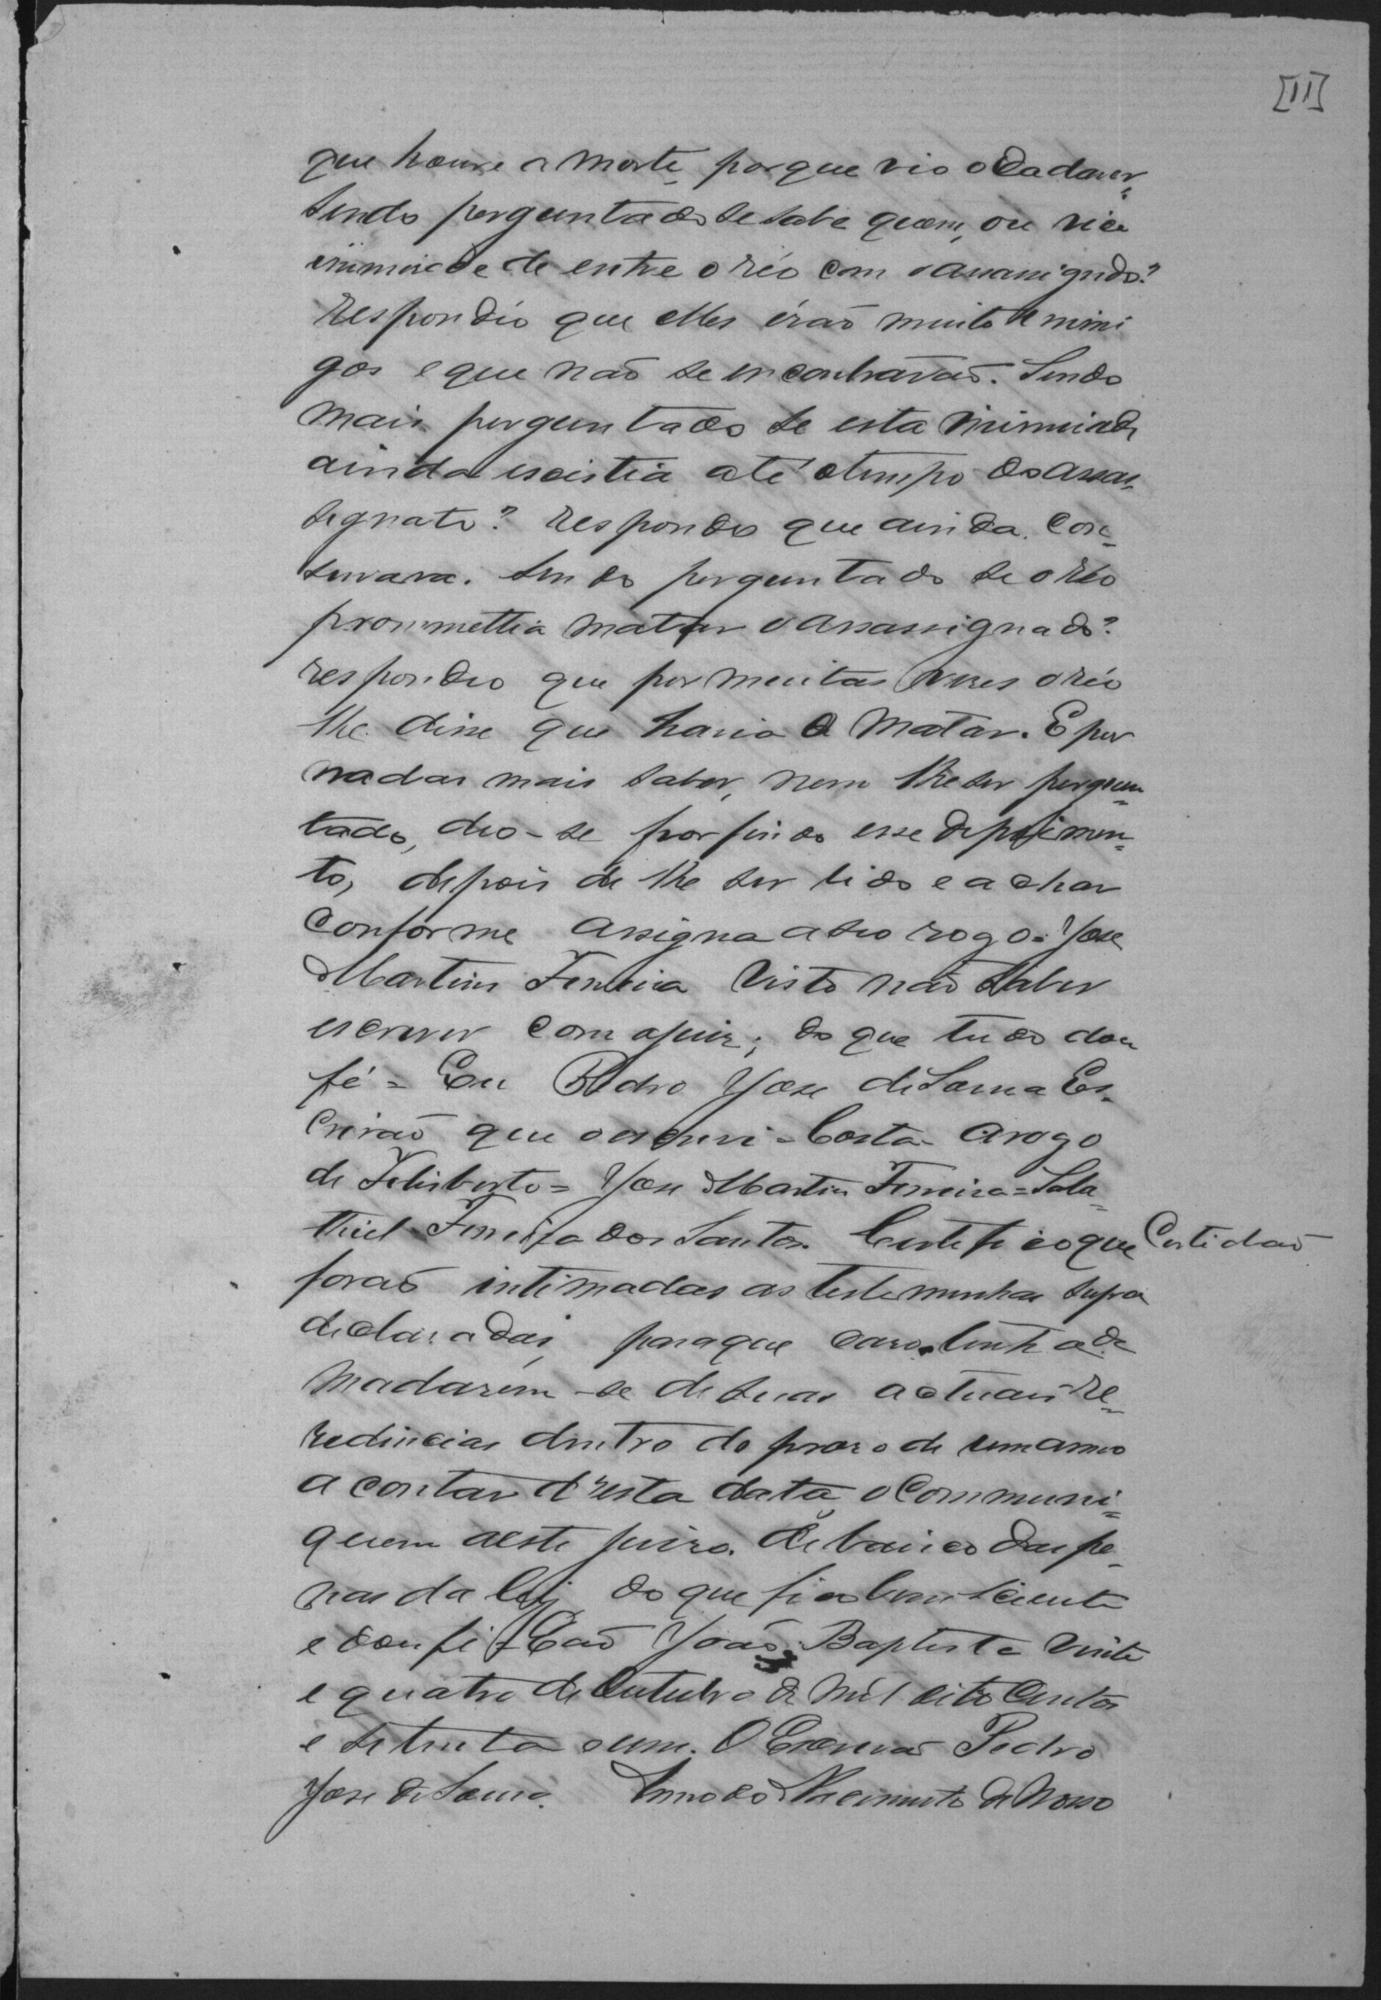 [11]
que houve a morte, porque vio o Cadaver.
Sendo perguntado se sabe quem, ou
inimisade de entre o réo com o assassignado?
Respondéo que elles érão muito enimi
gos e que não se encontravão. Sendo
mais perguntado se esta inimisade
ainda existia até o tempo do assas-
signato? Respondeo que ainda con-
servava. Sendo perguntado se o réo
promettia matar o assassignado?
respondeo que por muitas vezes o réo
lhe disse que havia o matar. E por
nadar mais saber, nem lhe ser pergun-
tado, deo-se por findo esse depoimen-
to, depois de lhe ser lido e achar
conforme assigna a seo rogo = Jose
Martins Ferreira visto não saber
escrever com o juiz; do que tudo dou
fé = Eu Pedro Jose de Sousa Es-
crivão que o escrevi = Costa = Arogo
de Felisberto = Jose Martins Ferreira = Sala-
thiel Ferreira dos Santos. Certifico que
Certidão
forão intimadas as testemunhas supra
declaradas, para que caso tenhão de
madarem-se de suas actuais re-
zedincias dentro do prazo de um anno
a contar d'esta data o communi-
quem aeste juizo. debaixo das pe-
nas da lei, do que ficão bem sciente
e dou fé = São João Baptista vinte
e quatro de Outubro de mil oito Centos
e setenta e um. O Escrivão Pedro
Jose de Sousa. Anno do Nacimento de Nosso